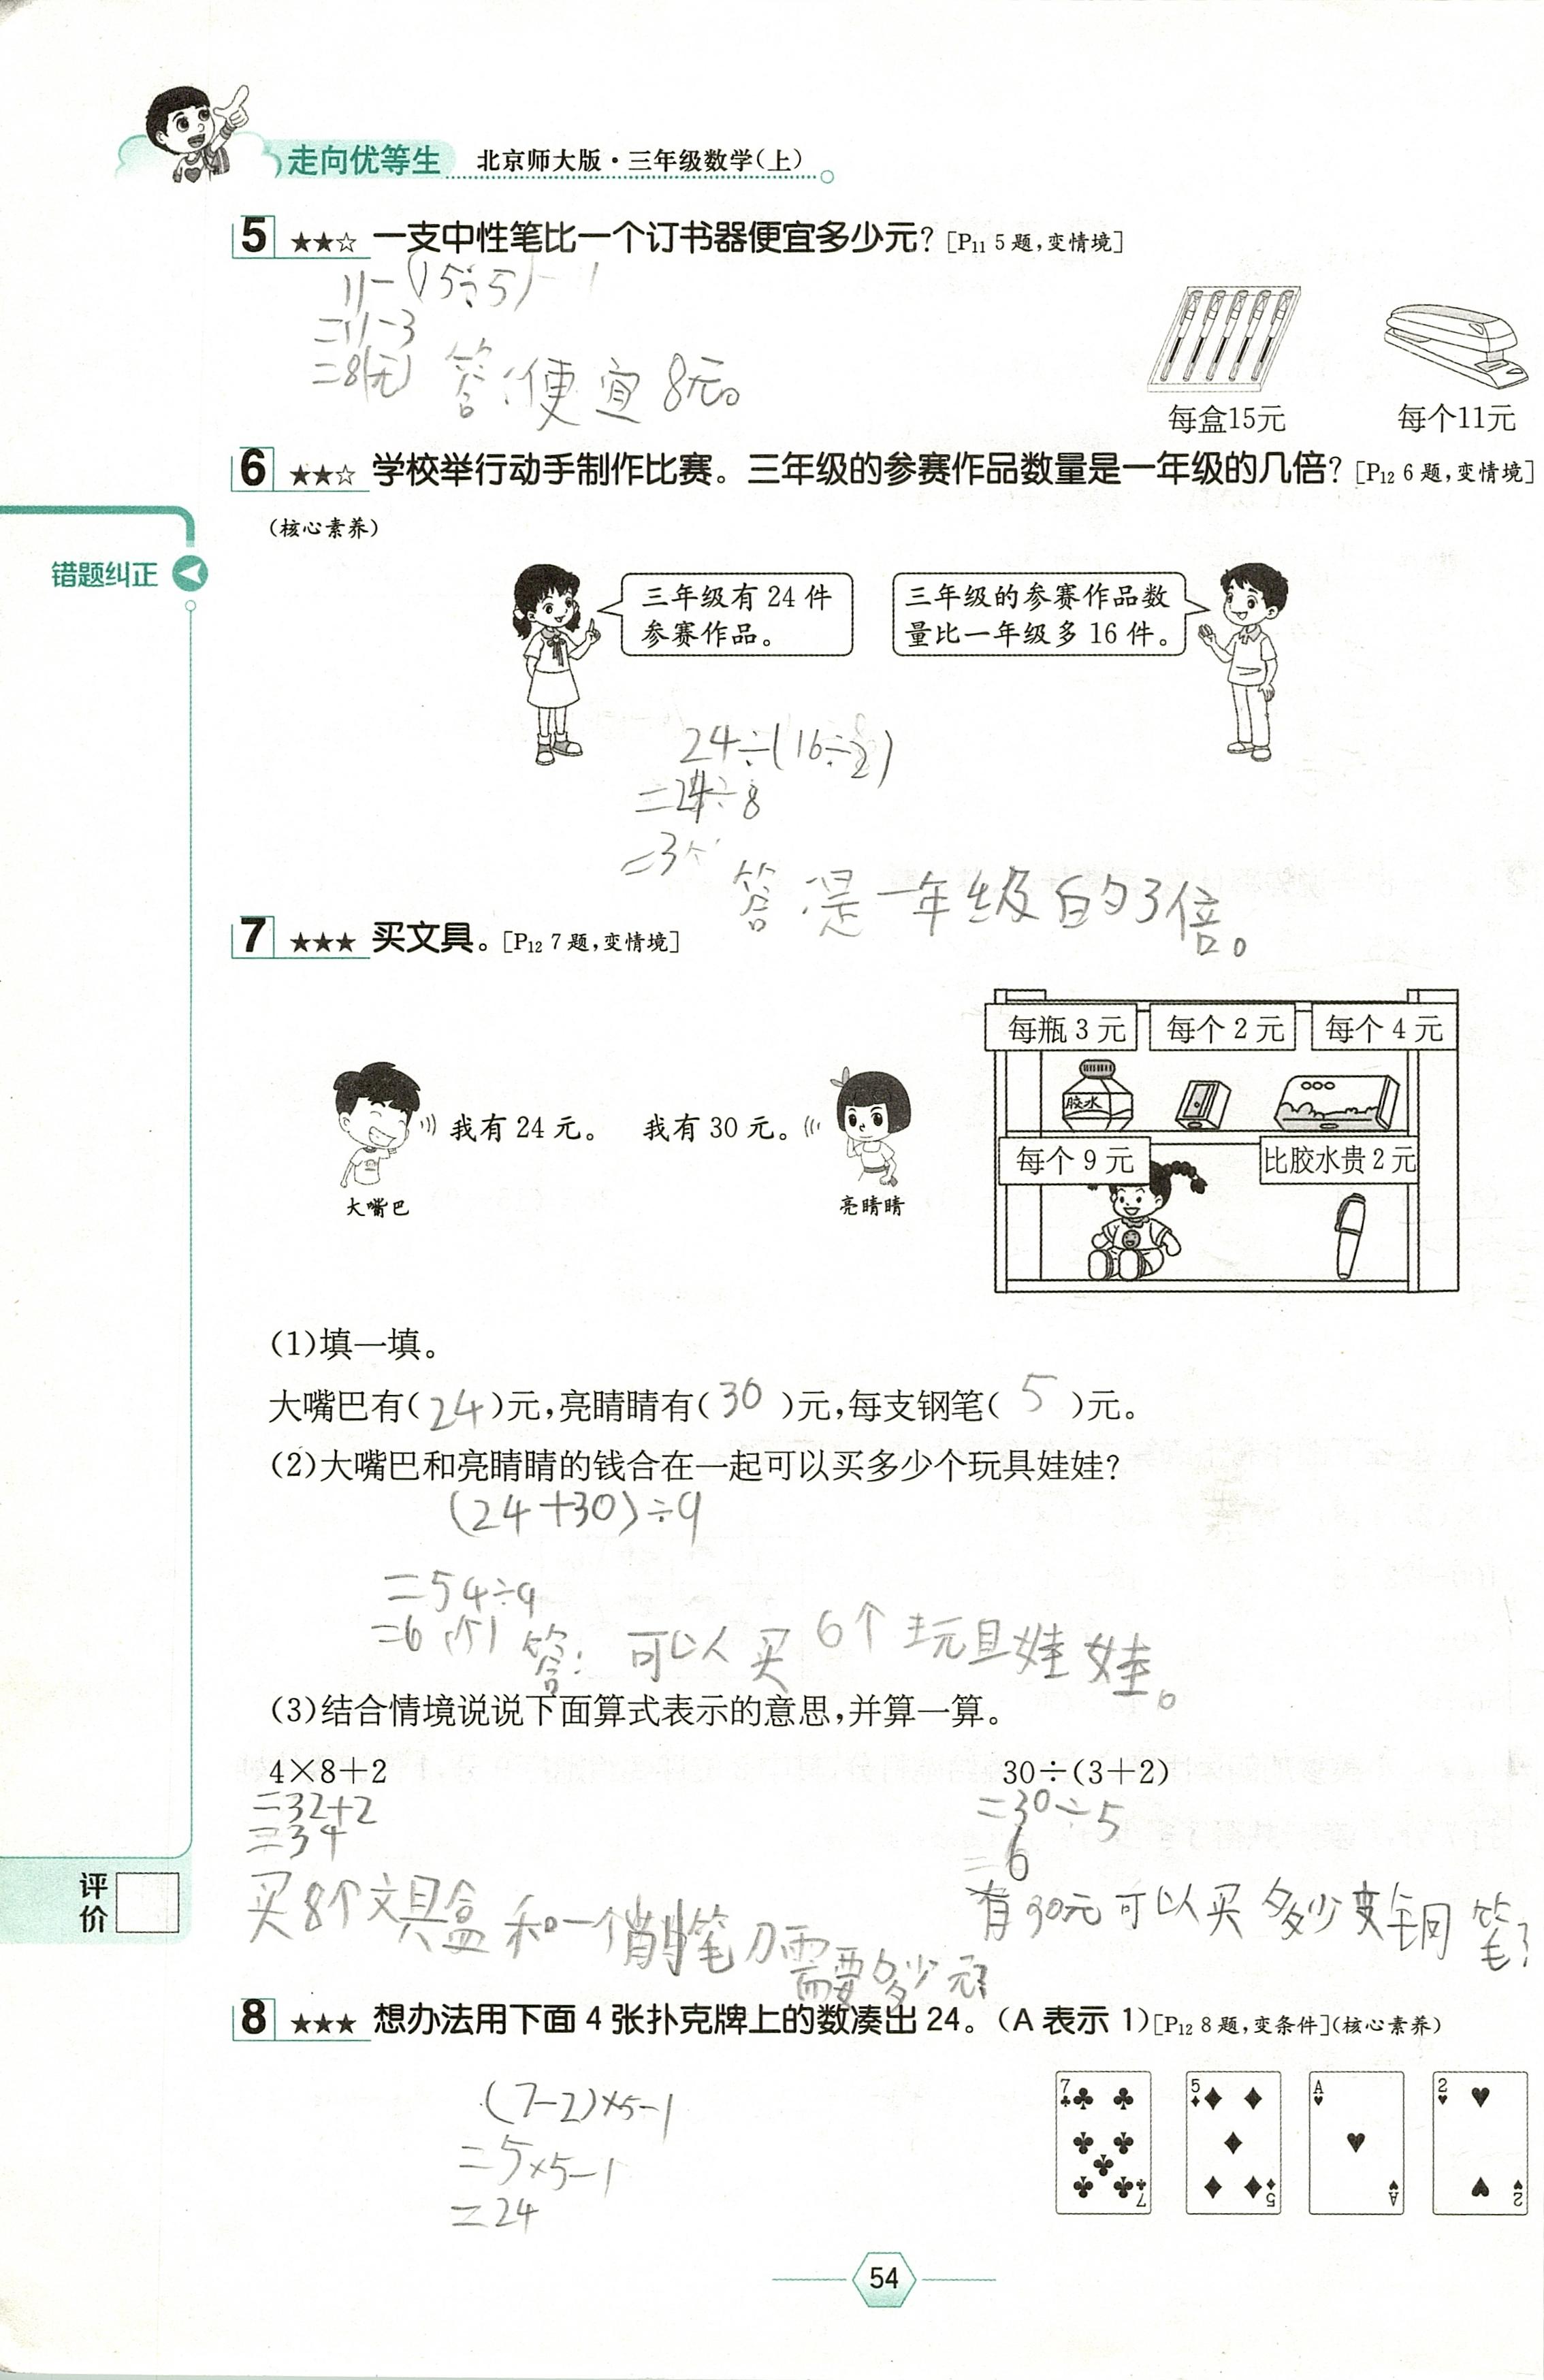 走向优等生 北京师大版·三年级数学(上)
5 ★★☆ 一支中性笔比一个订书器便宜多少元？[P11 5题,变情境]
11-(15÷5)
=11-3
=8(元) 答:便宜8元。
每盒15元 每个11元
6 ★★☆ 学校举行动手制作比赛。三年级的参赛作品数量是一年级的几倍？[P12 6题,变情境]
(核心素养)
错题纠正
三年级有24件
参赛作品。
三年级的参赛作品数
量比一年级多16件。
24÷(16÷2)
=24÷8
=3
答:是一年级的3倍。
7 ★★★ 买文具。[P12 7题,变情境]
每瓶3元 每个2元 每个4元
胶水
我有24元。 我有30元。
每个9元 比胶水贵2元
大嘴巴 亮睛睛
(1)填一填。
大嘴巴有(24)元,亮睛睛有(30)元,每支钢笔(5)元。
(2)大嘴巴和亮睛睛的钱合在一起可以买多少个玩具娃娃？
(24+30)÷9
=54÷9
=6(个) 答:可以买6个玩具娃娃。
(3)结合情境说说下面算式表示的意思,并算一算。
4×8+2 30÷(3+2)
=32+2 =30÷5
=34 =6
买8个文具盒和一个削笔刀需要多少元? 有30元可以买多少支钢笔?
评价
8 ★★★ 想办法用下面4张扑克牌上的数凑出24。(A表示1)[P12 8题,变条件](核心素养)
7 5 A 2
(7-2)×5-1
=5×5-1
=24
7 5 A 2
54